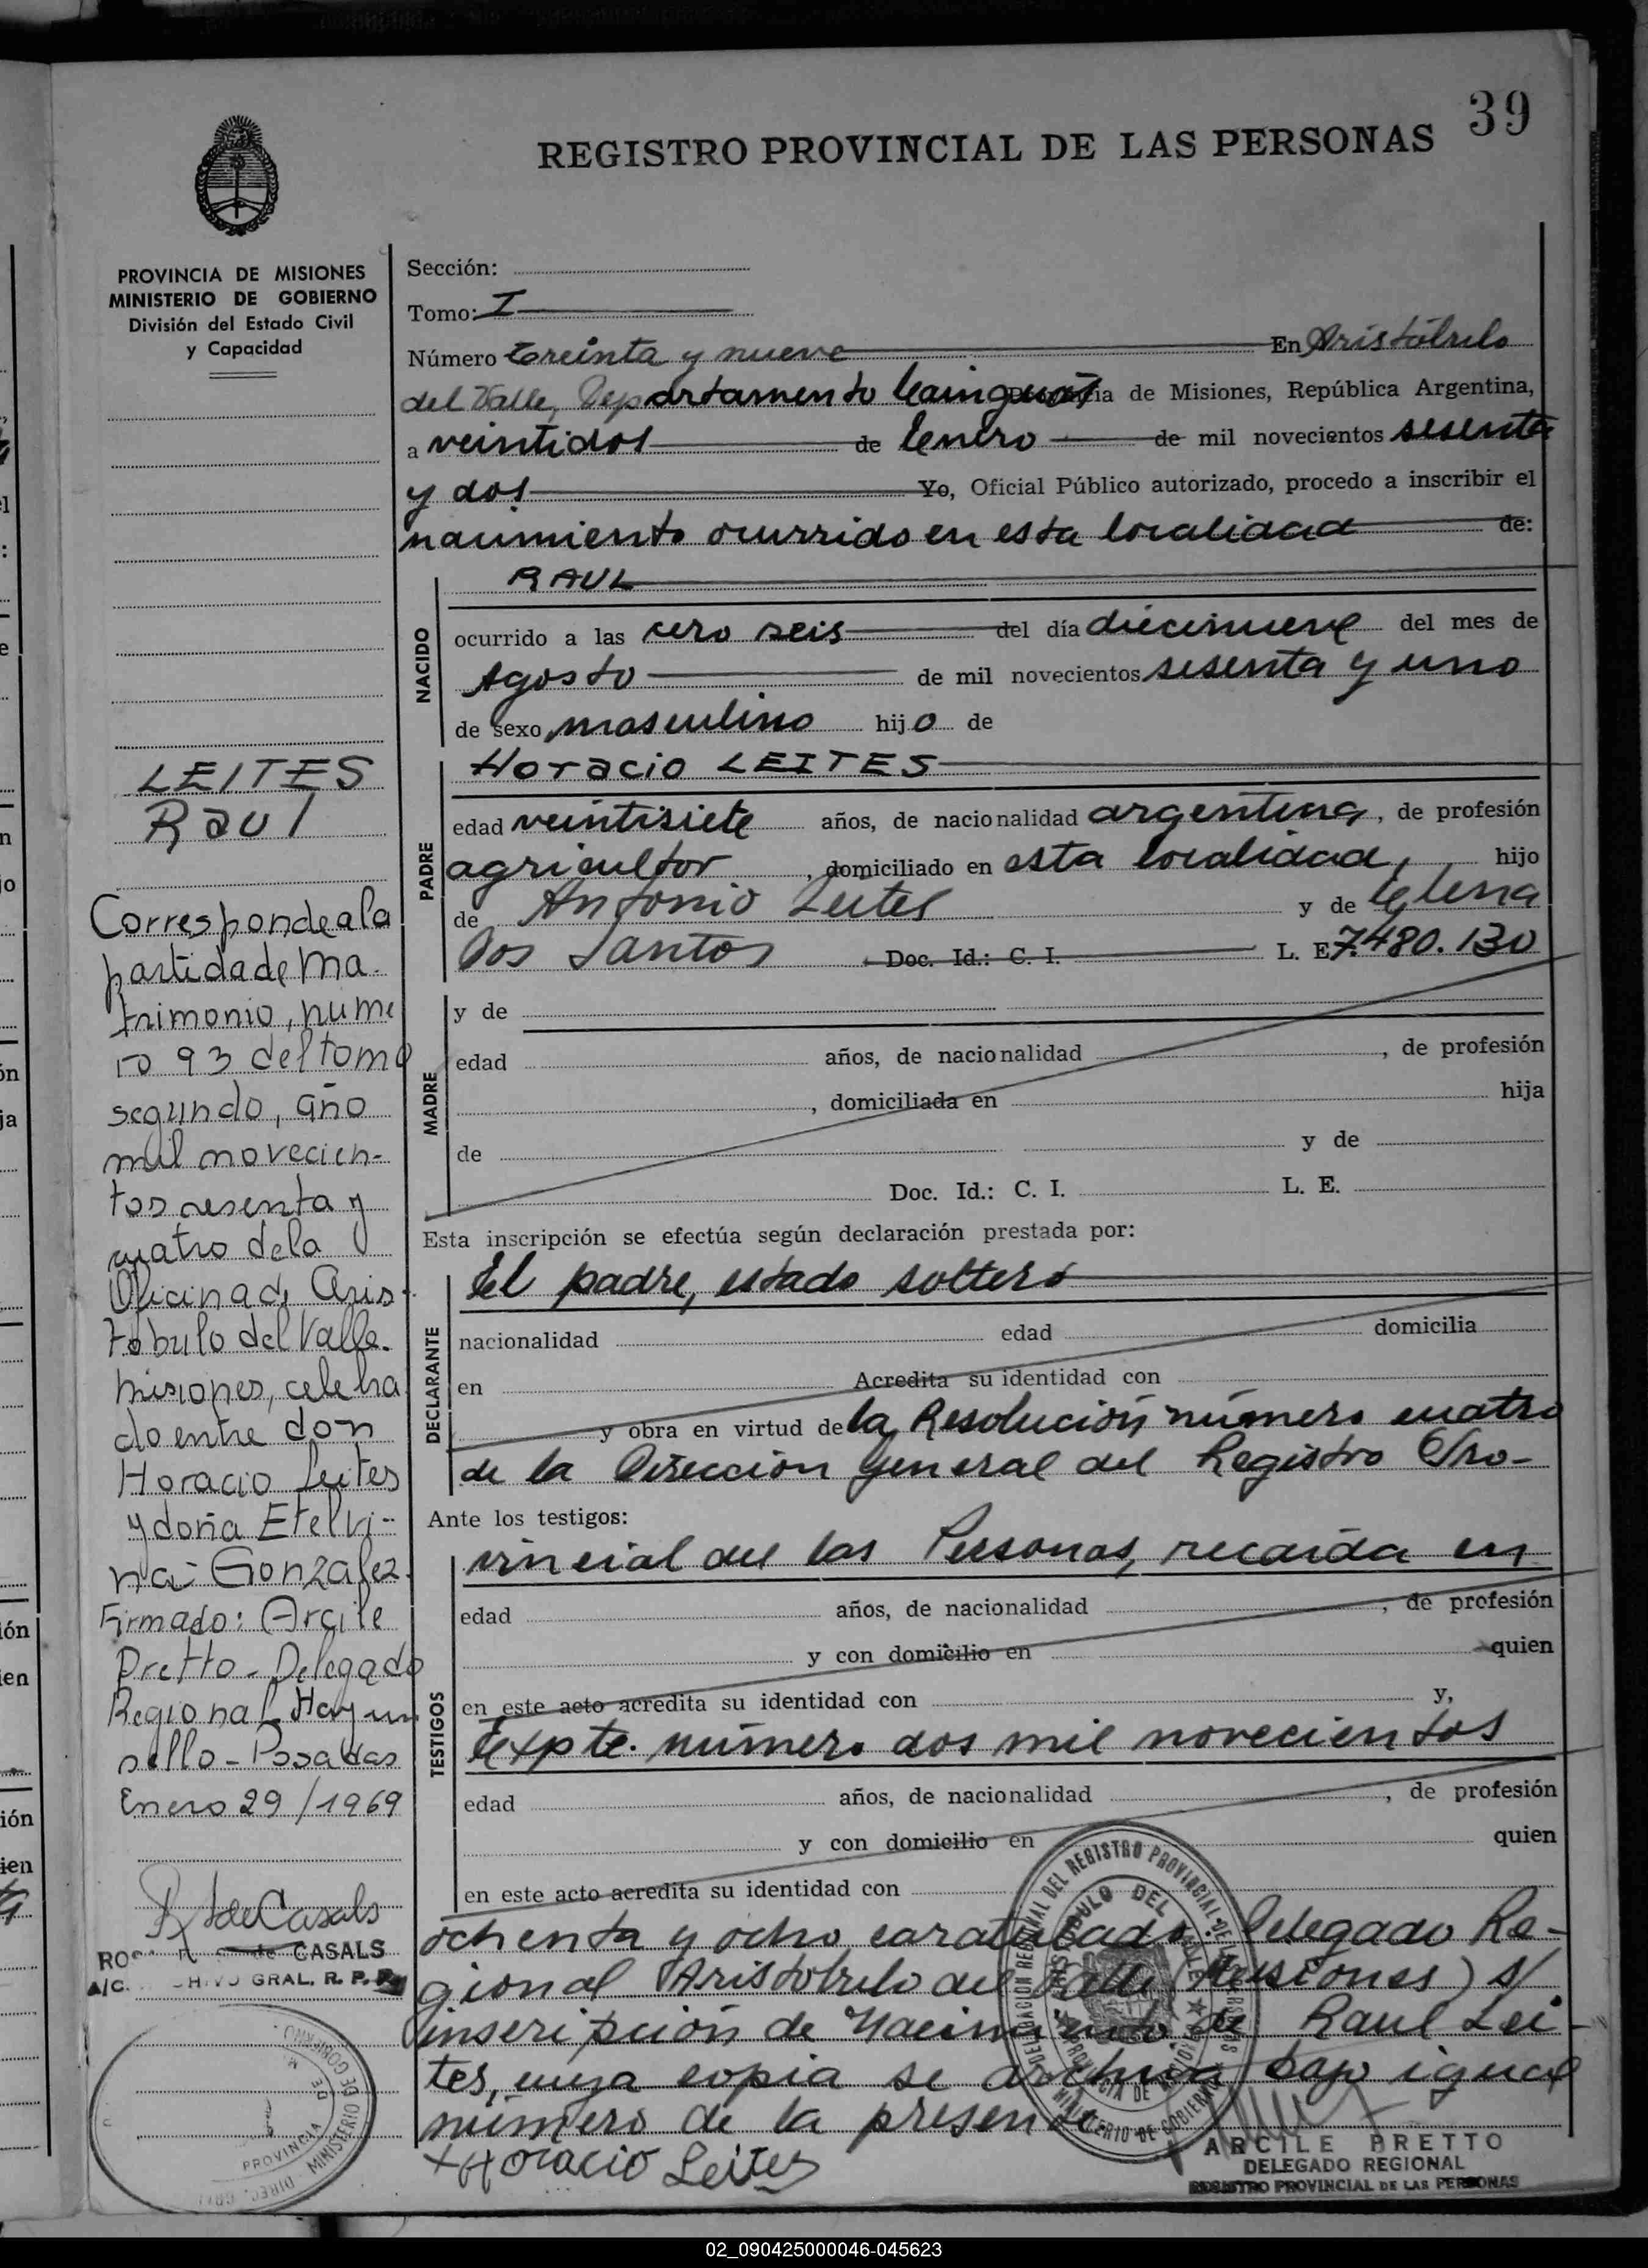 39
REGISTRO PROVINCIAL DE LAS PERSONAS
PROVINCIA DE MISIONES
MINISTERIO DE GOBIERNO
División del Estado Civil
y Capacidad
LEITES
Raul
Corresponde a la
partida de Ma-
trimonio, nume
ro 93 del tomo
segundo, año
mil novecien-
tos sesenta y
cuatro de la
Oficina de Aris-
tobulo del Valle.
Misiones, celebra
do entre don
Horacio Leites
y doña Etelvi-
na Gonzalez.
Firmado: Arcile
Pretto - Delegado
Regional Hay un
sello - Posadas
Enero 29/1969
R de Casals
CASALS
A/C. GRAL. R. P. P.
Sección:
Tomo: I
Número treinta y nueve En Aristóbulo
del Valle, Departamento Cainguás de Misiones, República Argentina,
a veintidos de Enero de mil novecientos sesenta
y dos Yo, Oficial Público autorizado, procedo a inscribir el
nacimiento ocurrido en esta localidad de:
NACIDO
RAUL
ocurrido a las cero seis del día diecinueve del mes de
Agosto de mil novecientos sesenta y uno
de sexo masculino hijo de
PADRE
Horacio LEITES
edad veintisiete años, de nacionalidad argentina, de profesión
agricultor, domiciliado en esta localidad, hijo
de Antonio Leites y de Elena
Dos Santos Doc. Id.: C. I. L. E 7.480.130
MADRE
y de
edad años, de nacionalidad , de profesión
, domiciliada en hija
de y de
Doc. Id.: C. I. L. E.
Esta inscripción se efectúa según declaración prestada por:
DECLARANTE
El padre, estado soltero
nacionalidad edad domicilia
en Acredita su identidad con
y obra en virtud de la Resolución número cuatro
de la Dirección General del Registro Pro-
Ante los testigos:
TESTIGOS
vincial de las Personas, recaída en
edad años, de nacionalidad , de profesión
y con domicilio en quien
en este acto acredita su identidad con y,
Expte. número dos mil novecientos
edad años, de nacionalidad , de profesión
y con domicilio en quien
en este acto acredita su identidad con
ochenta y ocho caratulado: Delegado Re-
gional Aristobulo del Valle (Misiones) s/
inscripción de Nacimiento de Raul Lei-
tes, cuya copia se archiva bajo igual
número de la presente
+ Horacio Leites
ARCILE PRETTO
DELEGADO REGIONAL
REGISTRO PROVINCIAL DE LAS PERSONAS
02_090425000046-045623